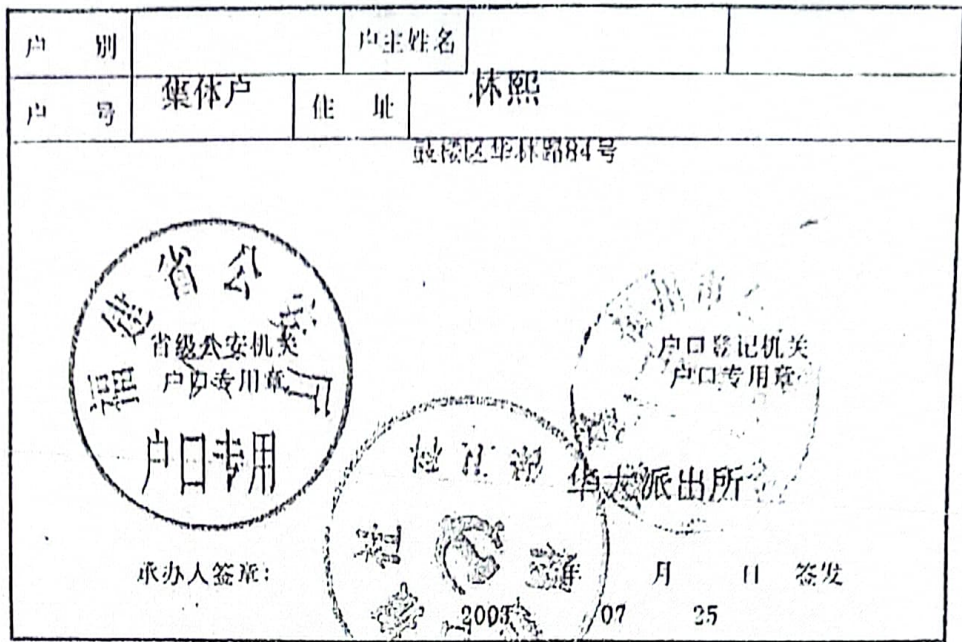 户 别 户主姓名
户 号 集体户 住 址 林熙
鼓楼区华林路84号
福建省公安厅
省级公安机关
户口专用章
户口专用
户口登记机关
户口专用章
华大派出所
承办人签章:
年 月 日 签发
2003 07 25